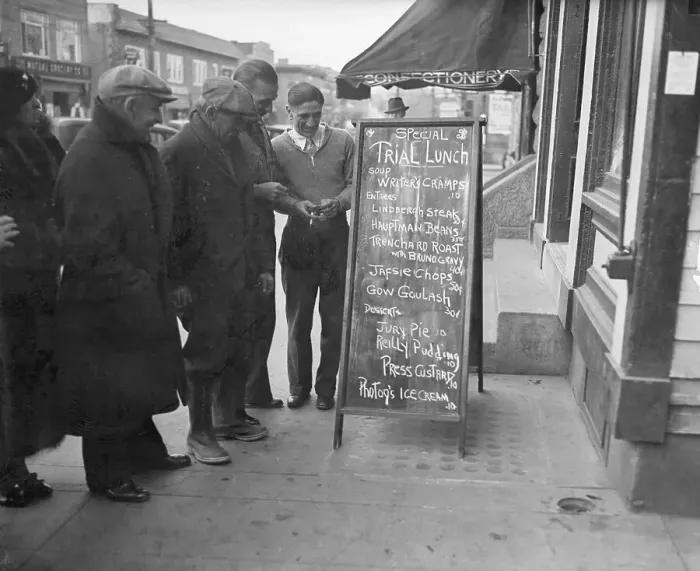 MUTUAL GROCERY CO.
CONFECTIONERY
SPECIAL
TRIAL LUNCH
SOUP
WRITER'S CRAMPS .10
ENTREES
LINDBERGH STEAK
HAUPTMAN BEANS
TRENCHARD ROAST
WITH BRUNO GRAVY
40¢
JAFSIE CHOPS
50¢
GOW GOULASH
30¢
DESSERTS
JURY PIE .10
REILLY PUDDING
.10
PRESS CUSTARD
.10
PHOTOG'S ICE CREAM
.10